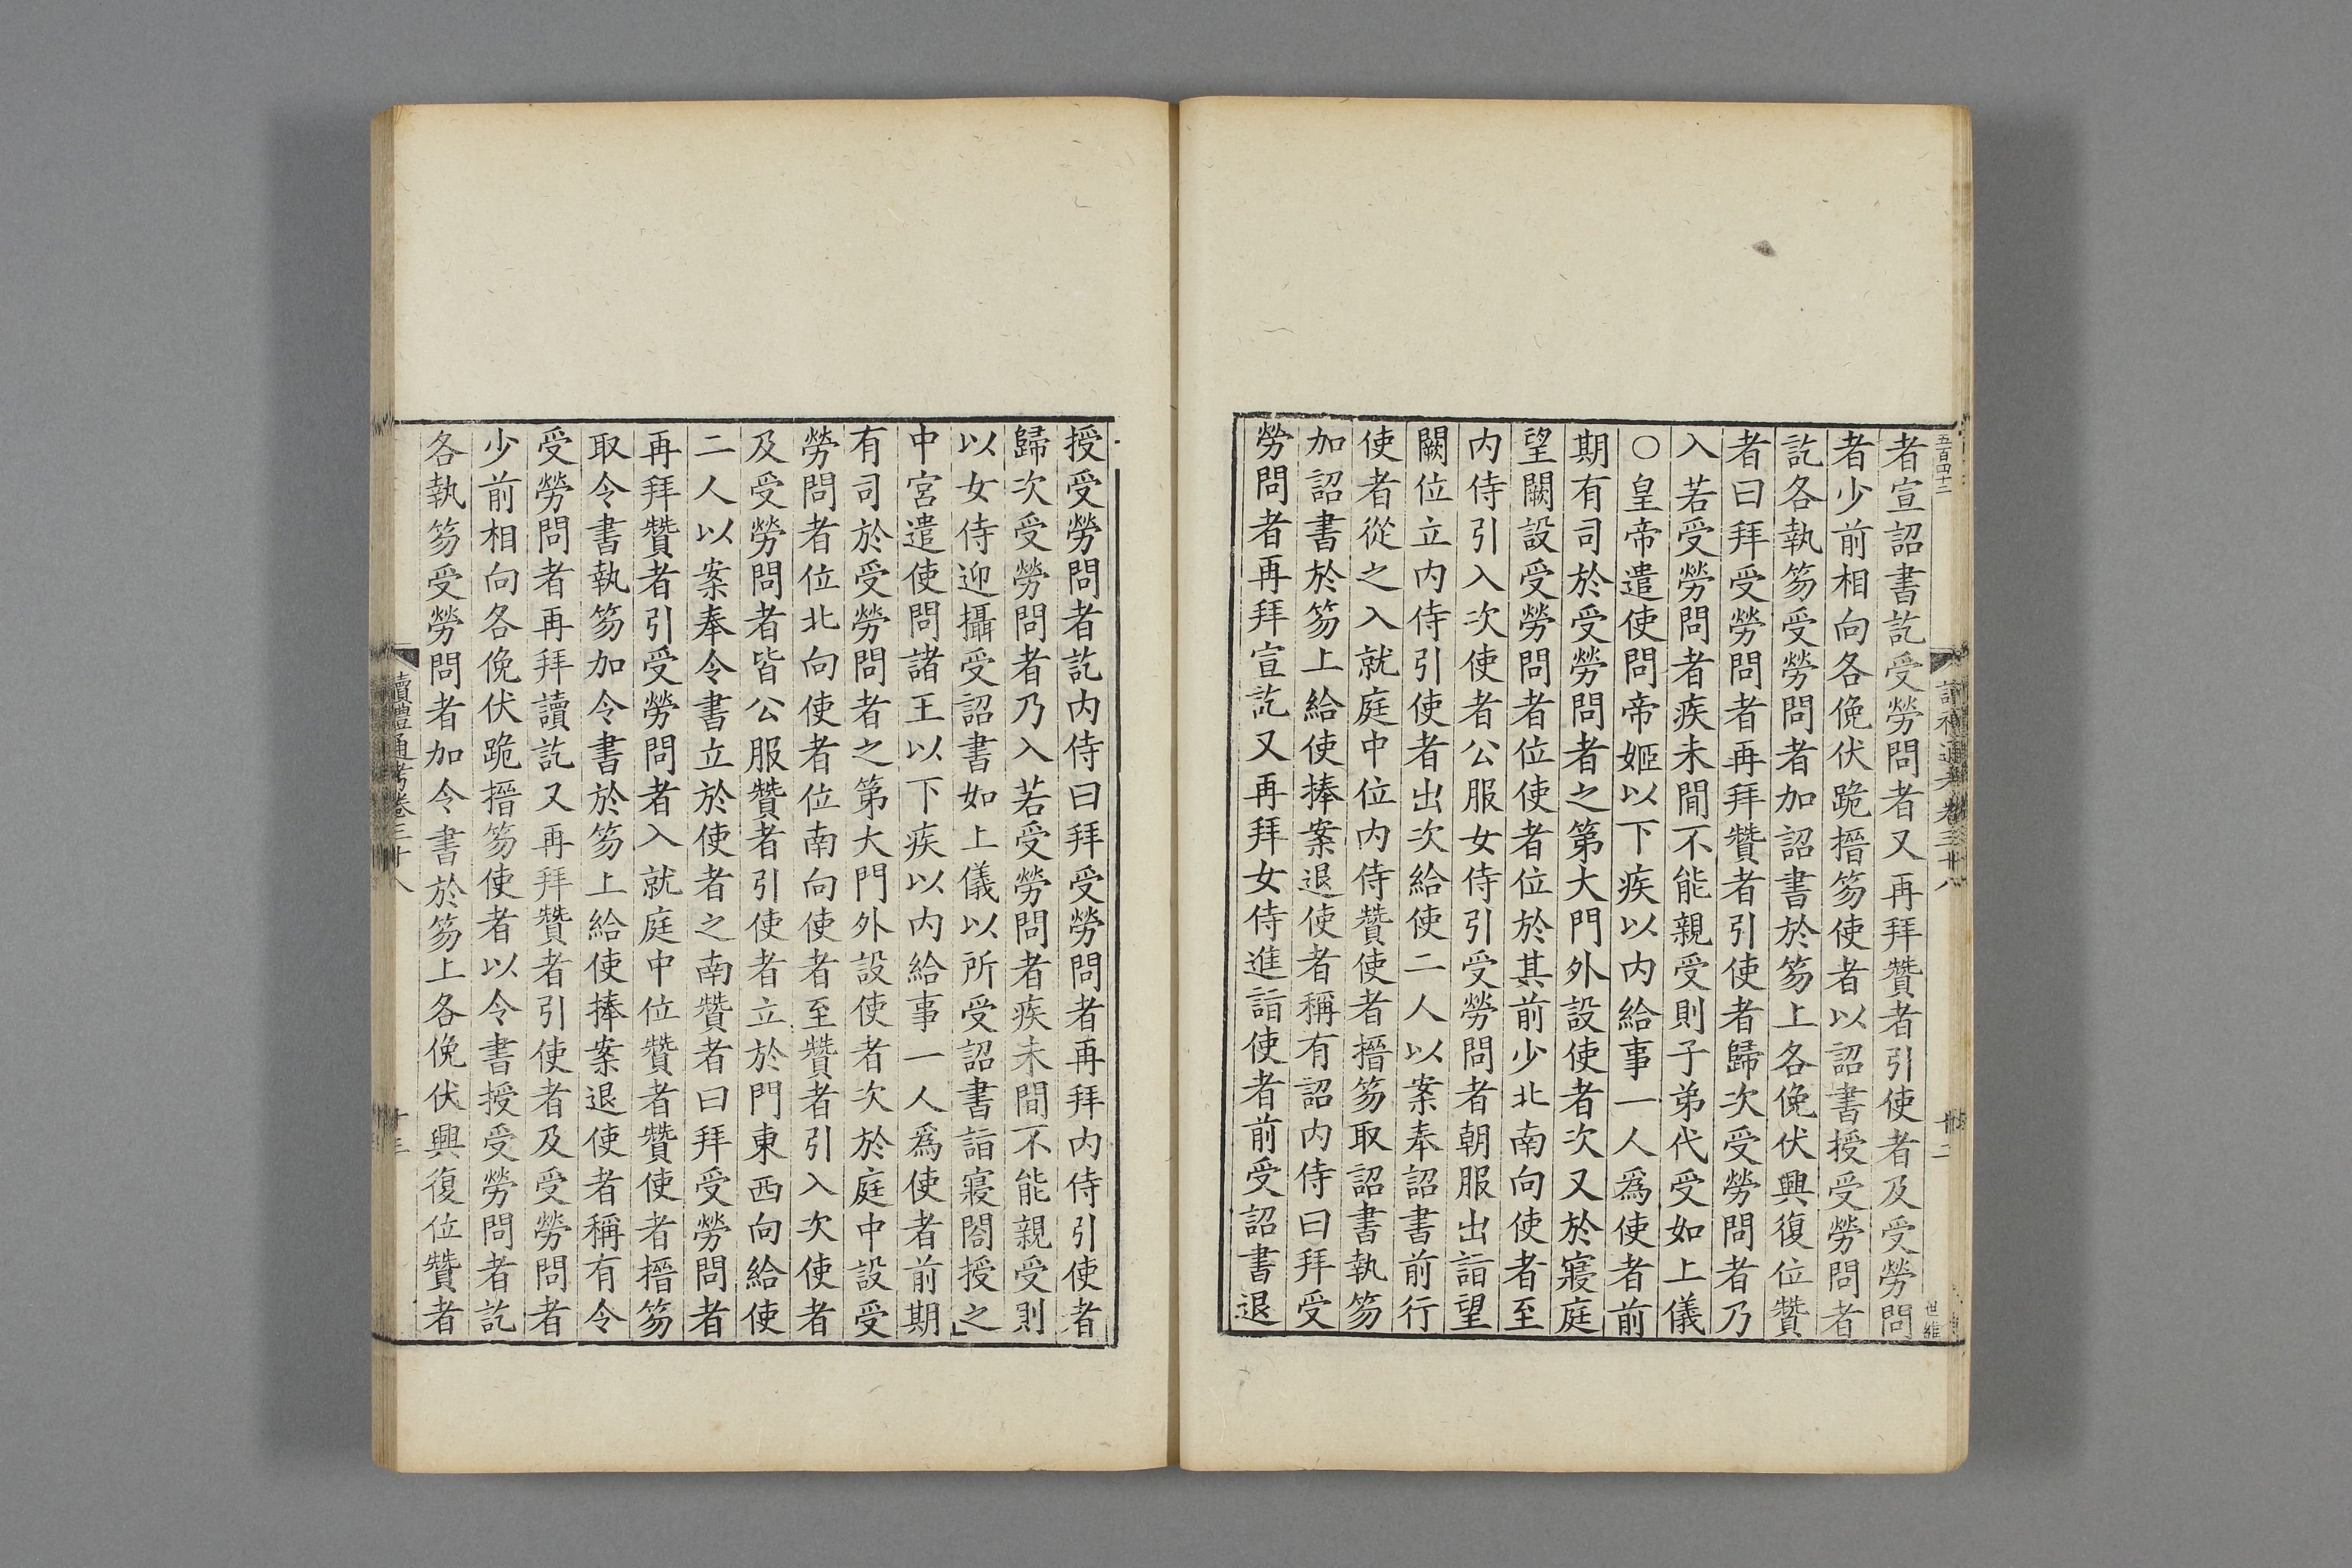 五百四十二
讀禮通考卷三十八
十二
世維
者宣詔書訖受勞問者又再拜贊者引使者及受勞問
者少前相向各俛伏跪搢笏使者以詔書授受勞問者
訖各執笏受勞問者加詔書於笏上各俛伏興復位贊
者曰拜受勞問者再拜贊者引使者歸次受勞問者乃
入若受勞問者疾未閒不能親受則子弟代受如上儀
○皇帝遣使問帝姬以下疾以内給事一人爲使者前
期有司於受勞問者之第大門外設使者次又於寢庭
望闕設受勞問者位使者位於其前少北南向使者至
内侍引入次使者公服女侍引受勞問者朝服出詣望
闕位立内侍引使者出次給使二人以案奉詔書前行
使者從之入就庭中位内侍贊使者搢笏取詔書執笏
加詔書於笏上給使捧案退使者稱有詔内侍曰拜受
勞問者再拜宣訖又再拜女侍進詣使者前受詔書退
授受勞問者訖内侍曰拜受勞問者再拜内侍引使者
歸次受勞問者乃入若受勞問者疾未閒不能親受則
以女侍迎攝受詔書如上儀以所受詔書詣寢閤授之
中宮遣使問諸王以下疾以内給事一人爲使者前期
有司於受勞問者之第大門外設使者次於庭中設受
勞問者位北向使者位南向使者至贊者引入次使者
及受勞問者皆公服贊者引使者立於門東西向給使
二人以案奉令書立於使者之南贊者曰拜受勞問者
再拜贊者引受勞問者入就庭中位贊者贊使者搢笏
取令書執笏加令書於笏上給使捧案退使者稱有令
受勞問者再拜讀訖又再拜贊者引使者及受勞問者
少前相向各俛伏跪搢笏使者以令書授受勞問者訖
各執笏受勞問者加令書於笏上各俛伏興復位贊者
讀禮通考卷三十八
十三